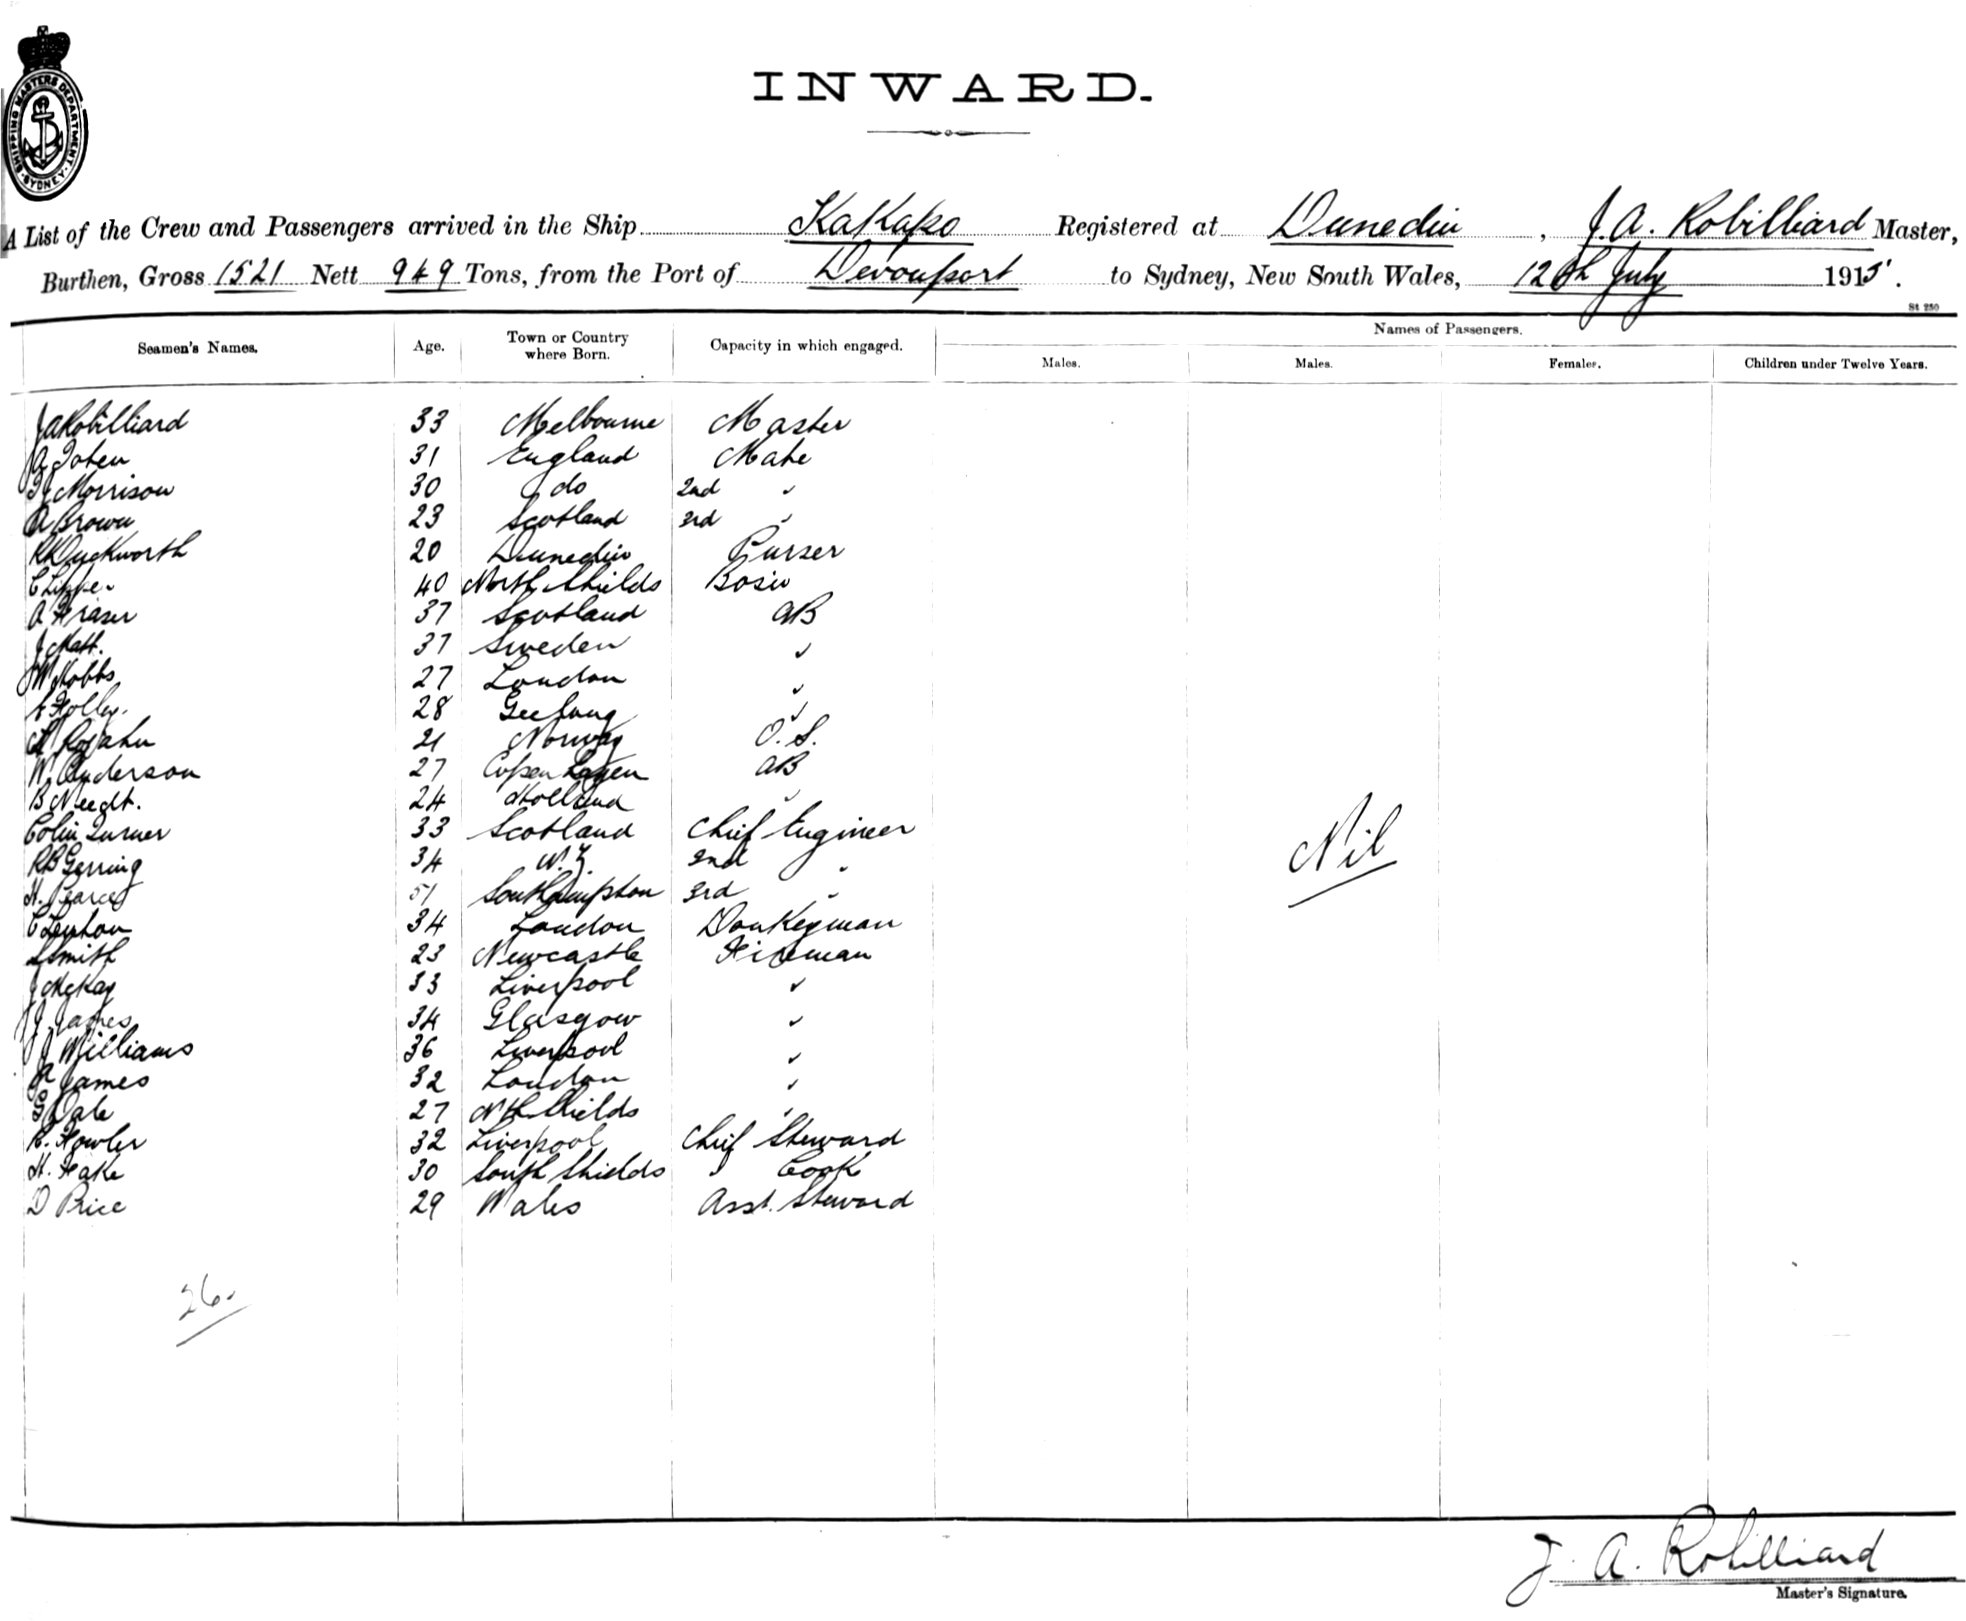 SHIPPING MASTERS DEPARTMENT. SYDNEY
INWARD.
A List of the Crew and Passengers arrived in the Ship Kakapo Registered at Dunedin, J. A. Robilliard Master,
Burthen, Gross 1521 Nett 949 Tons, from the Port of Devonport to Sydney, New South Wales, 12th July 1915.
St 250
Names of Passengers.
Seamen's Names. Age. Town or Country where Born. Capacity in which engaged. Males. Males. Females. Children under Twelve Years.
J A Robilliard 33 Melbourne Master
31 England Mate
Morrison 30 do 2nd "
A Brown 23 Scotland 3rd "
Duckworth 20 Dunedin Purser
40 North Shields Bosin
A Fraser 37 Scotland AB
J Matt. 37 Sweden "
W Hobbs 27 London "
Holly. 28 Geelong "
21 Norway O.S.
W. Anderson 27 Copenhagen AB
B Needt. 24 Holland "
Colin Turner 33 Scotland Chief Engineer
RB Gerring 34 N.Z. 2nd "
H. Pearce 51 Southampton 3rd "
C 34 London Donkeyman
Smith 23 Newcastle Fireman
J McKay 33 Liverpool "
J. James 34 Glasgow "
J Williams 36 Liverpool "
A James 32 London "
G Dale 27 Nth Shields "
R. Fowler 32 Liverpool Chief Steward
H. Hake 30 South Shields " Cook
D Price 29 Wales Asst. Steward
Nil
26.
J. A. Robilliard
Master's Signature.